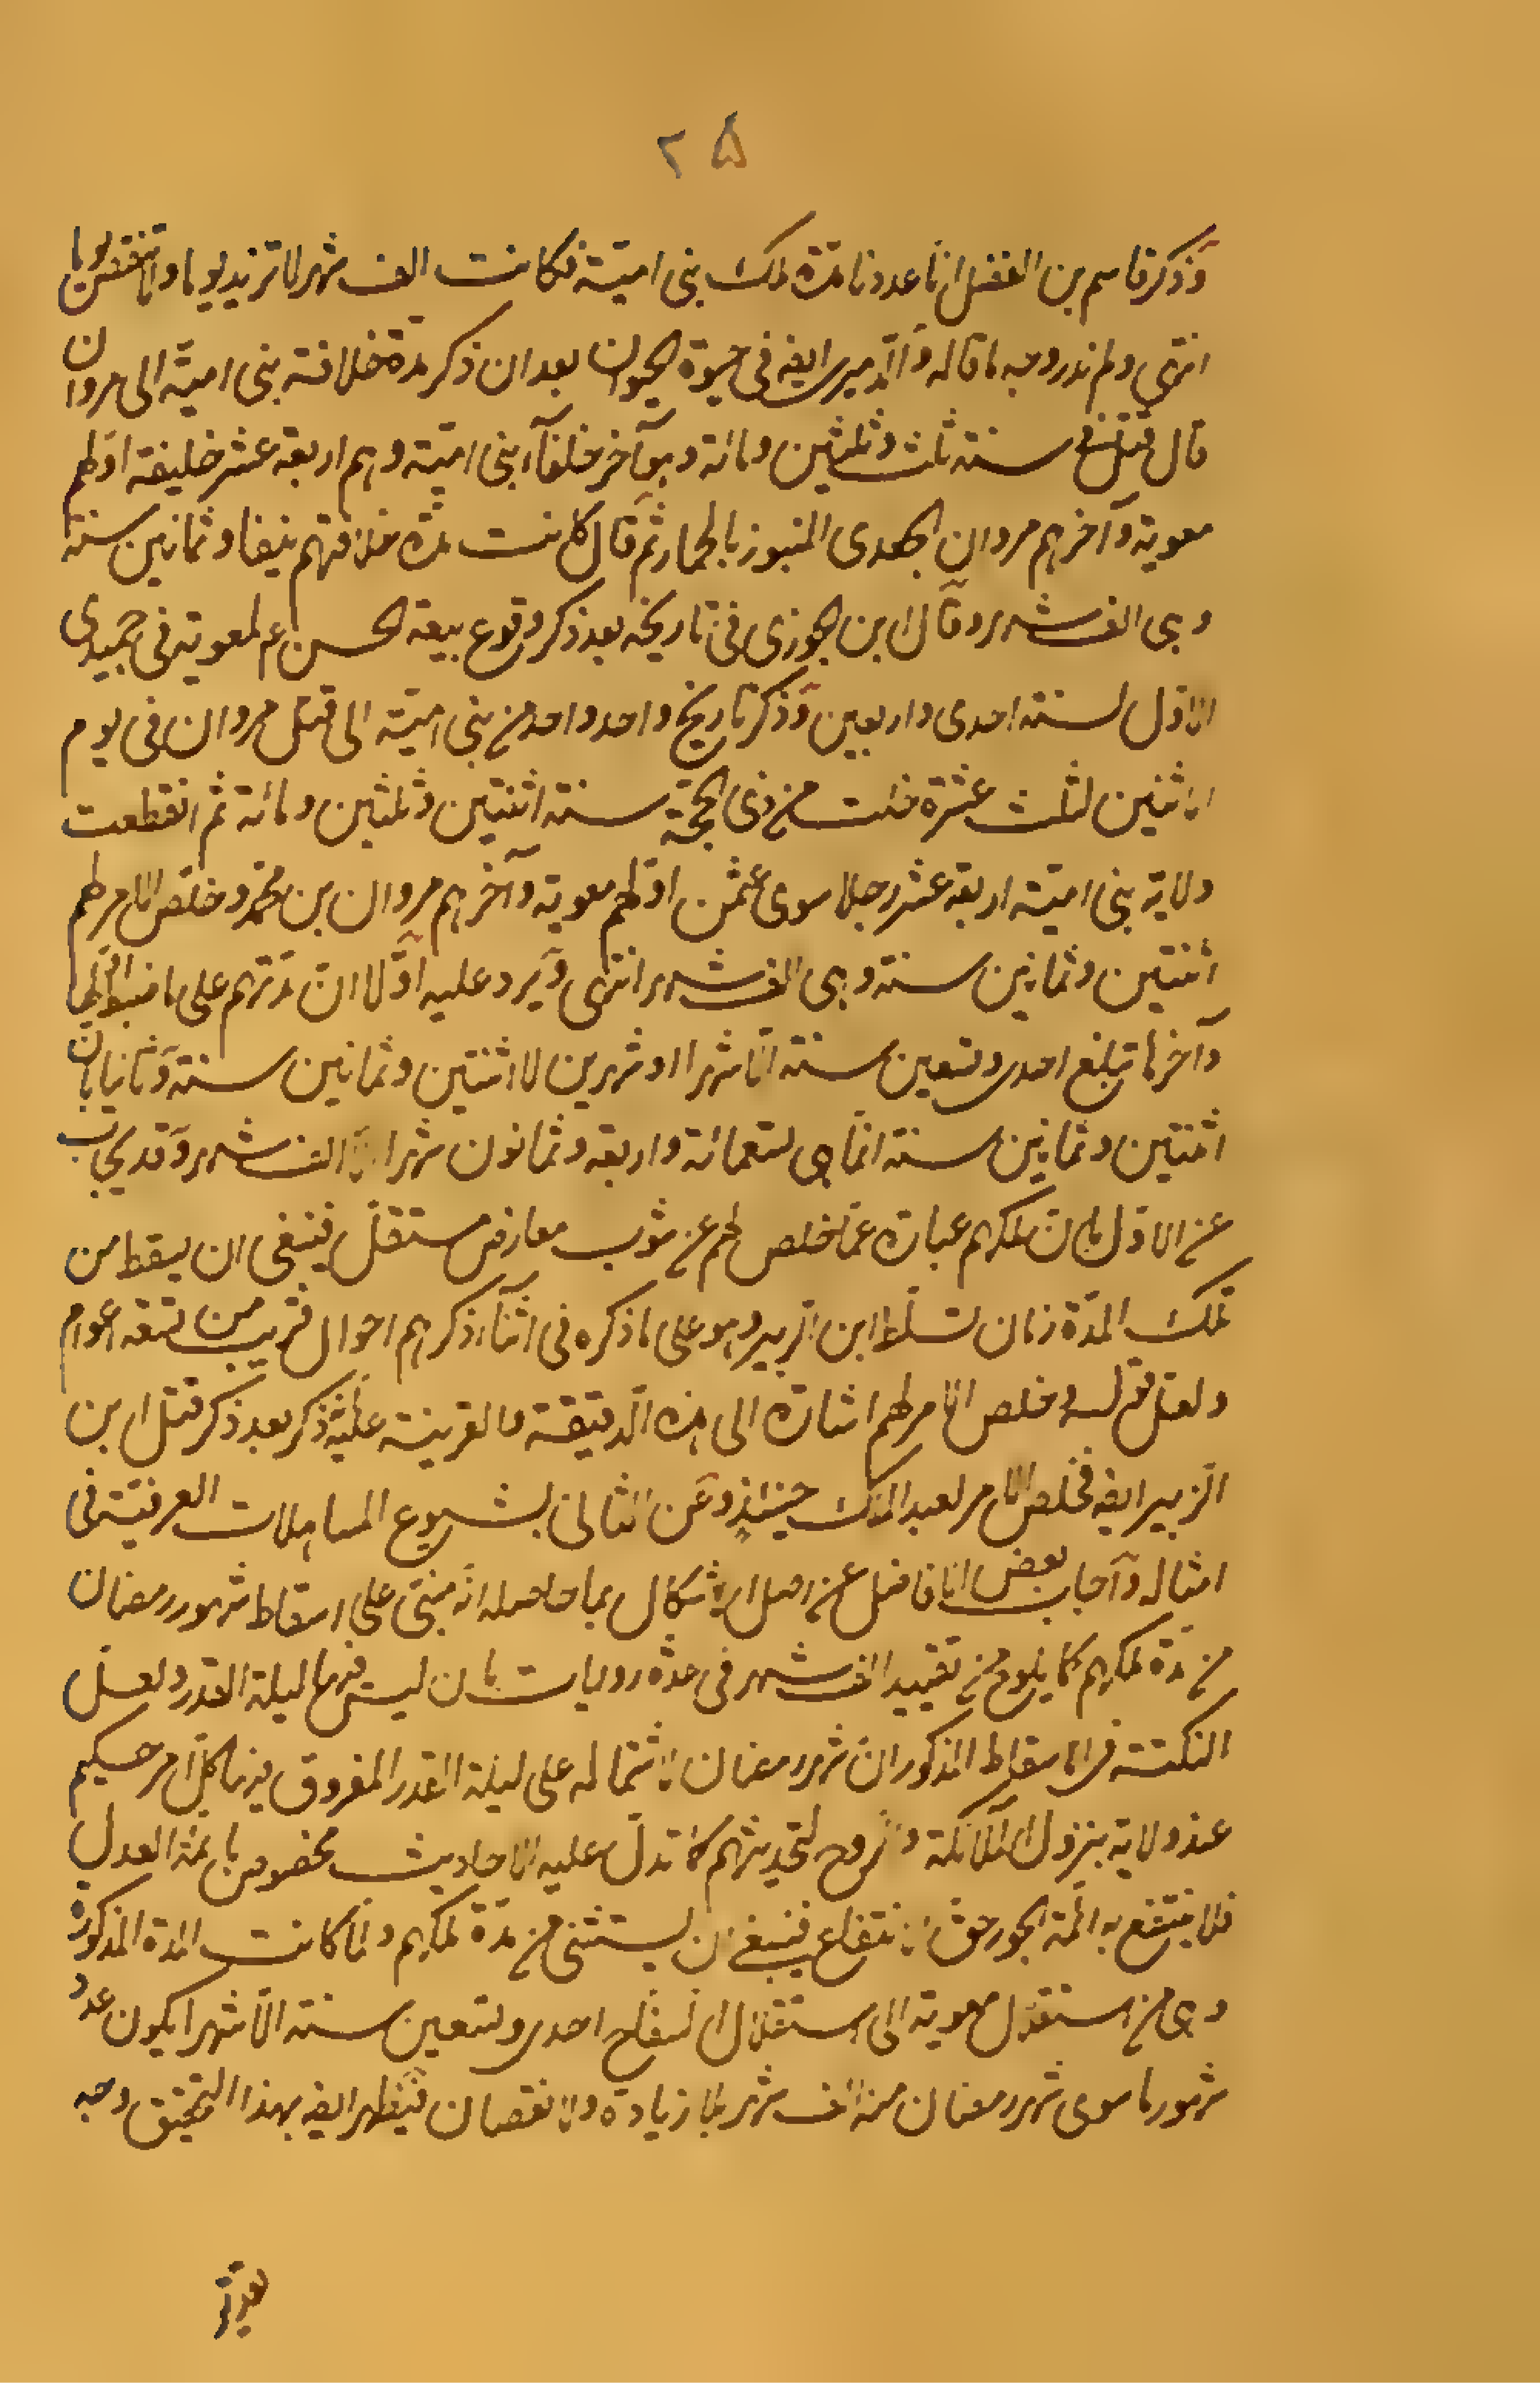 ٢٥
وذكر قاسم بن الفضل انا عددنا مدة ملك بنى امية فكانت الف شهر لا تزيد يوما ولا تنقص يوما
انتهى ولم ندر وجه ما قاله والدميرى ايضه فى حيوة الحيوان بعد ان ذكر مدة خلافة بنى امية الى مروان
قال قتل فى سنة ثلث وثلثين ومائة وهو آخر خلفآء بنى امية وهم اربعة عشر خليفة اولهم
معوية وآخرهم مروان الجعدى المنبوز بالحمار ثم قال كانت مدة خلافتهم نيفا وثمانين سنة
وهى الف شهر وقال ابن الجوزى فى تاريخه بعد ذكر وقوع بيعة الحسن ع م لمعوية فى جميدى
الاول لسنة احدى واربعين وذكر تاريخ واحد واحد من بنى امية الى قتل مروان فى يوم
الاثنين لثلث عشرة خلت من ذى الحجة سنة اثنتين وثلثين ومائة ثم انقطعت
ولاية بنى امية اربعة عشر رجلا سوى عثمن اولهم معوية وآخرهم مروان بن محمد وخلص الامر لهم
اثنتين وثمانين سنة وهى الف شهر انتهى ويرد عليه اولا ان مدتهم على ما ضبط اولها
وآخرها تبلغ احدى وتسعين سنة الا شهرا او شهرين لا اثنتين وثمانين سنة وثانيا بان
اثنتين وثمانين سنة انما هى تسعمائة واربعة وثمانون شهرا لا الف شهر وقد يجاب
عن الاول بان ملكهم عبارة عما خلص لهم عن شوب معارض مستقل فينبغى ان يسقط من
تلك المدة زمان تسلط ابن الزبير وهو على ما ذكره فى اثنآء ذكرهم احوال قريب من تسعة اعوام
ولعل قوله وخلص الامر لهم اشارة الى هذه الدقيقة والقرينة عليه ذكر بعد ذكر قتل ابن
الزبير ايضه فخلص الامر لعبد الملك حينئذ وعن الثانى بشيوع المساهلات العرفية فى
امثاله وآجاب بعض الافاضل عن اصل الاشكال بما حاصله انه مبنى على اسقاط شهور رمضان
من مدة ملكهم كما يلوح من تقييد الف شهر فى عدة روايات بان ليس فيها ليلة القدر ولعل
النكتة فى الاسقاط المذكور ان شهر رمضان لاشتماله على ليلة القدر المفروق فيها كل امر حكيم
عند ولاية بنزول الملائكة والروح لتحديثهم كما تدل عليه الاحاديث مخصوص بائمة العدل
فلا ينتفع به ائمة الجور حق الانتفاع فينبغى ان يستثنى من مدة ملكهم ولما كانت المدة المذكورة
وهى من استقلال معوية الى استقلال السفاح احدى وتسعين سنة الا شهرا يكون عدد
شهورها سوى شهر رمضان منه الف شهر بلا زيادة ولا نقصان فيظهر ايضه بهذا التحقيق وجه